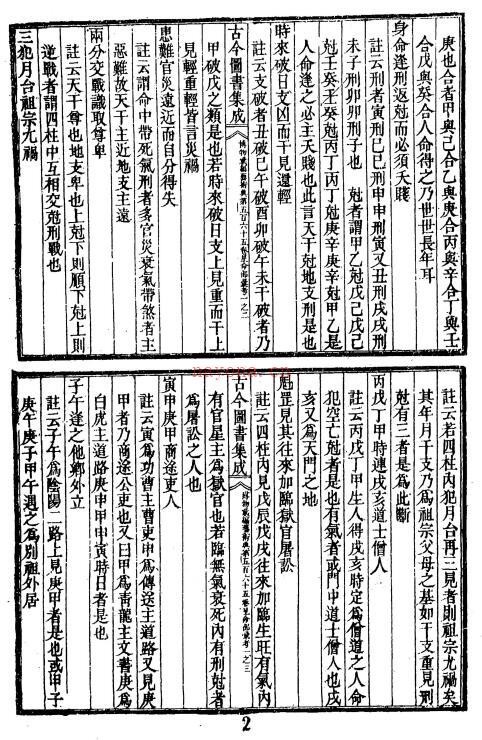 庚也合者甲與己合乙與庚合丙與辛合丁與壬
合戊與癸合人命得之乃世世長年耳
身命逢刑返尅而必須夭賤
註云刑者寅刑巳巳刑申申刑寅又丑刑戌戌刑
未子刑卯卯刑子也　尅者謂甲乙尅戊己戊己
尅壬癸壬癸尅丙丁丙丁尅庚辛庚辛尅甲乙是
人命逢之必主夭賤也此言天干尅地支刑是也
時來破日支凶而干見還輕
註云支破者丑破巳午破酉卯破午未干破者乃
古今圖書集成　博物彙編藝術典第五百六十五卷星命部彙考一之二
甲破戊之類是也若時來破日支上見重而干上
見輕重輕皆言災禍
患難官災遠近而自分得失
註云謂命中帶死氣刑者多官災衰氣帶煞者主
惡難故天干主近地支主遠
兩分交戰識取尊卑
註云天干尊也地支卑也上尅下則順下尅上則
逆戰者謂四柱中互相交尅刑戰也
三犯月台祖宗尤禍
註云若四柱內犯月台再三見者則祖宗尤禍矣
其年月干支乃為祖宗父母之基如干支重見刑
尅有三者是為此斷
丙戊丁甲時連戌亥道士僧人
註云丙戊丁甲生人得戌亥時定為僧道之人命
犯空亡尅者是也有氣者或門中道士僧人也戌
亥又為天門之地
魁罡見其往來加臨獄官屠訟
註云四柱內見戊辰戊戌往來加臨生旺有氣內
古今圖書集成　博物彙編藝術典第五百六十五卷星命部彙考一之三
有官星主為獄官也若臨無氣衰死內有刑尅者
為屠訟之人也
寅申庚甲商途吏人
註云寅為功曹主曹吏申為傳送主道路又見庚
甲者乃商途公吏也又曰甲為青龍主文書庚為
白虎主道路庚申甲申寅時日者是也
子午逢之他鄉外立
註云子午為陰陽二路上見庚甲者是也或甲子
庚午庚子甲午遇之為別祖外居
2